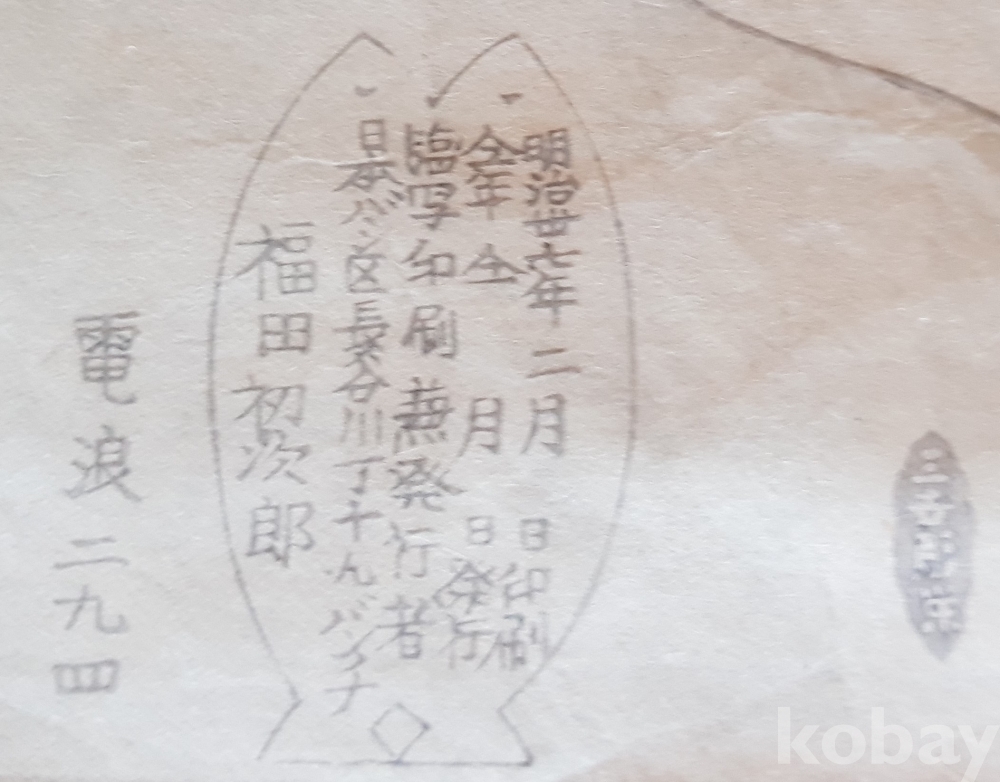 明治卅七年二月 日印刷
仝年仝月 日発行
臨写印刷兼発行者
日本バシ区長谷川丁十九バンチ
福田初次郎
電浪二九四
kobay